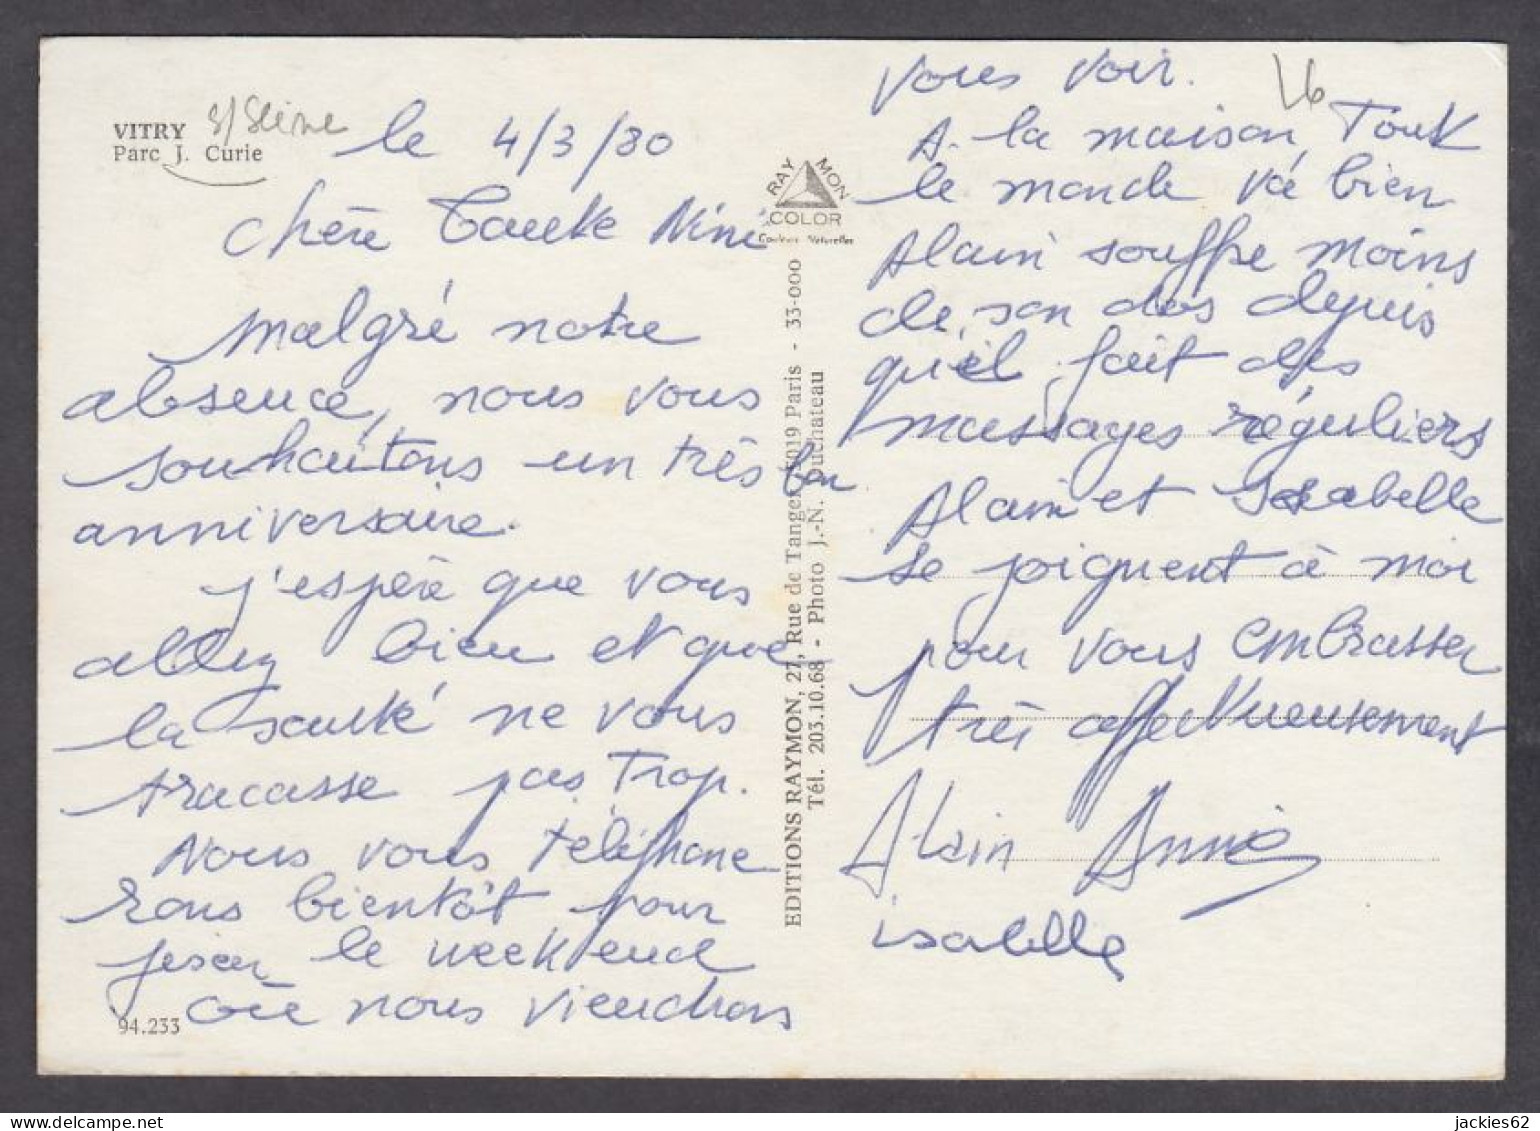 VITRY s/Seine
Parc J. Curie
le 4/3/80
chère Tante Nini
malgré notre
absence, nous vous
souhaitons un très bon
anniversaire.
j'espère que vous
allez bien et que
la santé ne vous
tracasse pas trop.
Nous vous téléphone
rons bientôt pour
fixer le week end
où nous viendrons
94.233
RAYMON
COLOR
Couleurs Naturelles
EDITIONS RAYMON, 27, Rue de Tanger, 75019 Paris - 33-000
Tél. 203.10.68 - Photo J.-N. Duchateau
16
vous voir.
A la maison, Tout
le monde va bien
Alain souffre moins
de son dos depuis
qu'il fait des
massages réguliers
Alain et Isabelle
se joignent à moi
pour vous embrasser
très affectueusement
Alain Annie
isabelle
jackies62